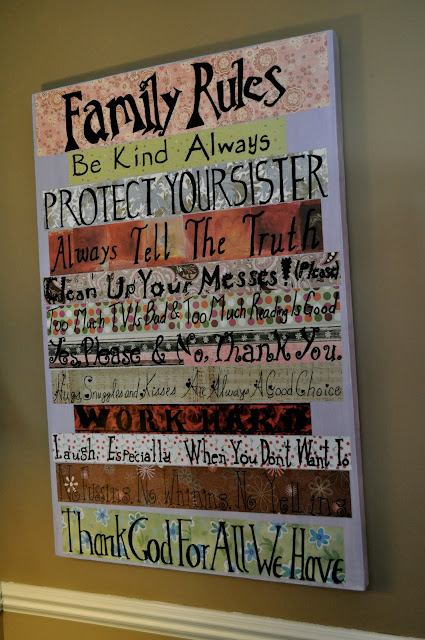 Family Rules
Be Kind Always
PROTECT YOUR SISTER
Always Tell The Truth
Clean Up Your Messes! (Please).
Too Much TV Is Bad & Too Much Reading Is Good
Yes, Please & No, Thank You.
Hugs, Snuggles and Kisses Are Always A Good Choice
WORK HARD
Laugh, Especially When You Don't Want To
No Fussing, No Whining, No Yelling
Thank God For All We Have